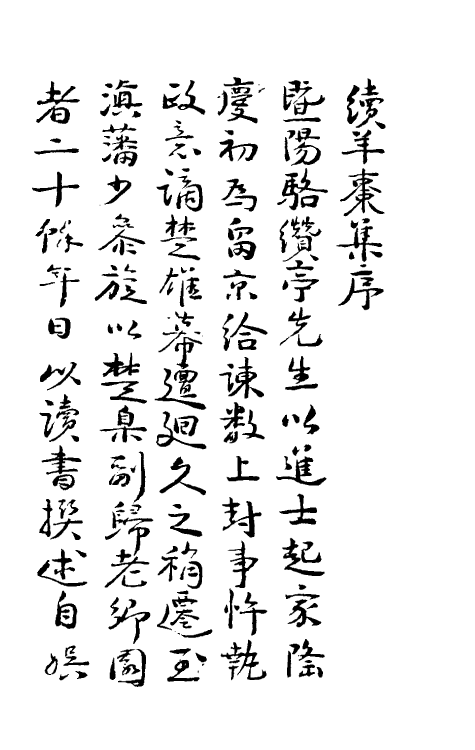 續羊棗集序
暨陽駱纘亭先生以進士起家隆
慶初爲留京給諌數上封事忤執
政意謫楚雄幕邅廻久之稍遷至
滇藩少叅旋以楚臬副歸老鄉園
者二十餘年日以讀書撰述自娯